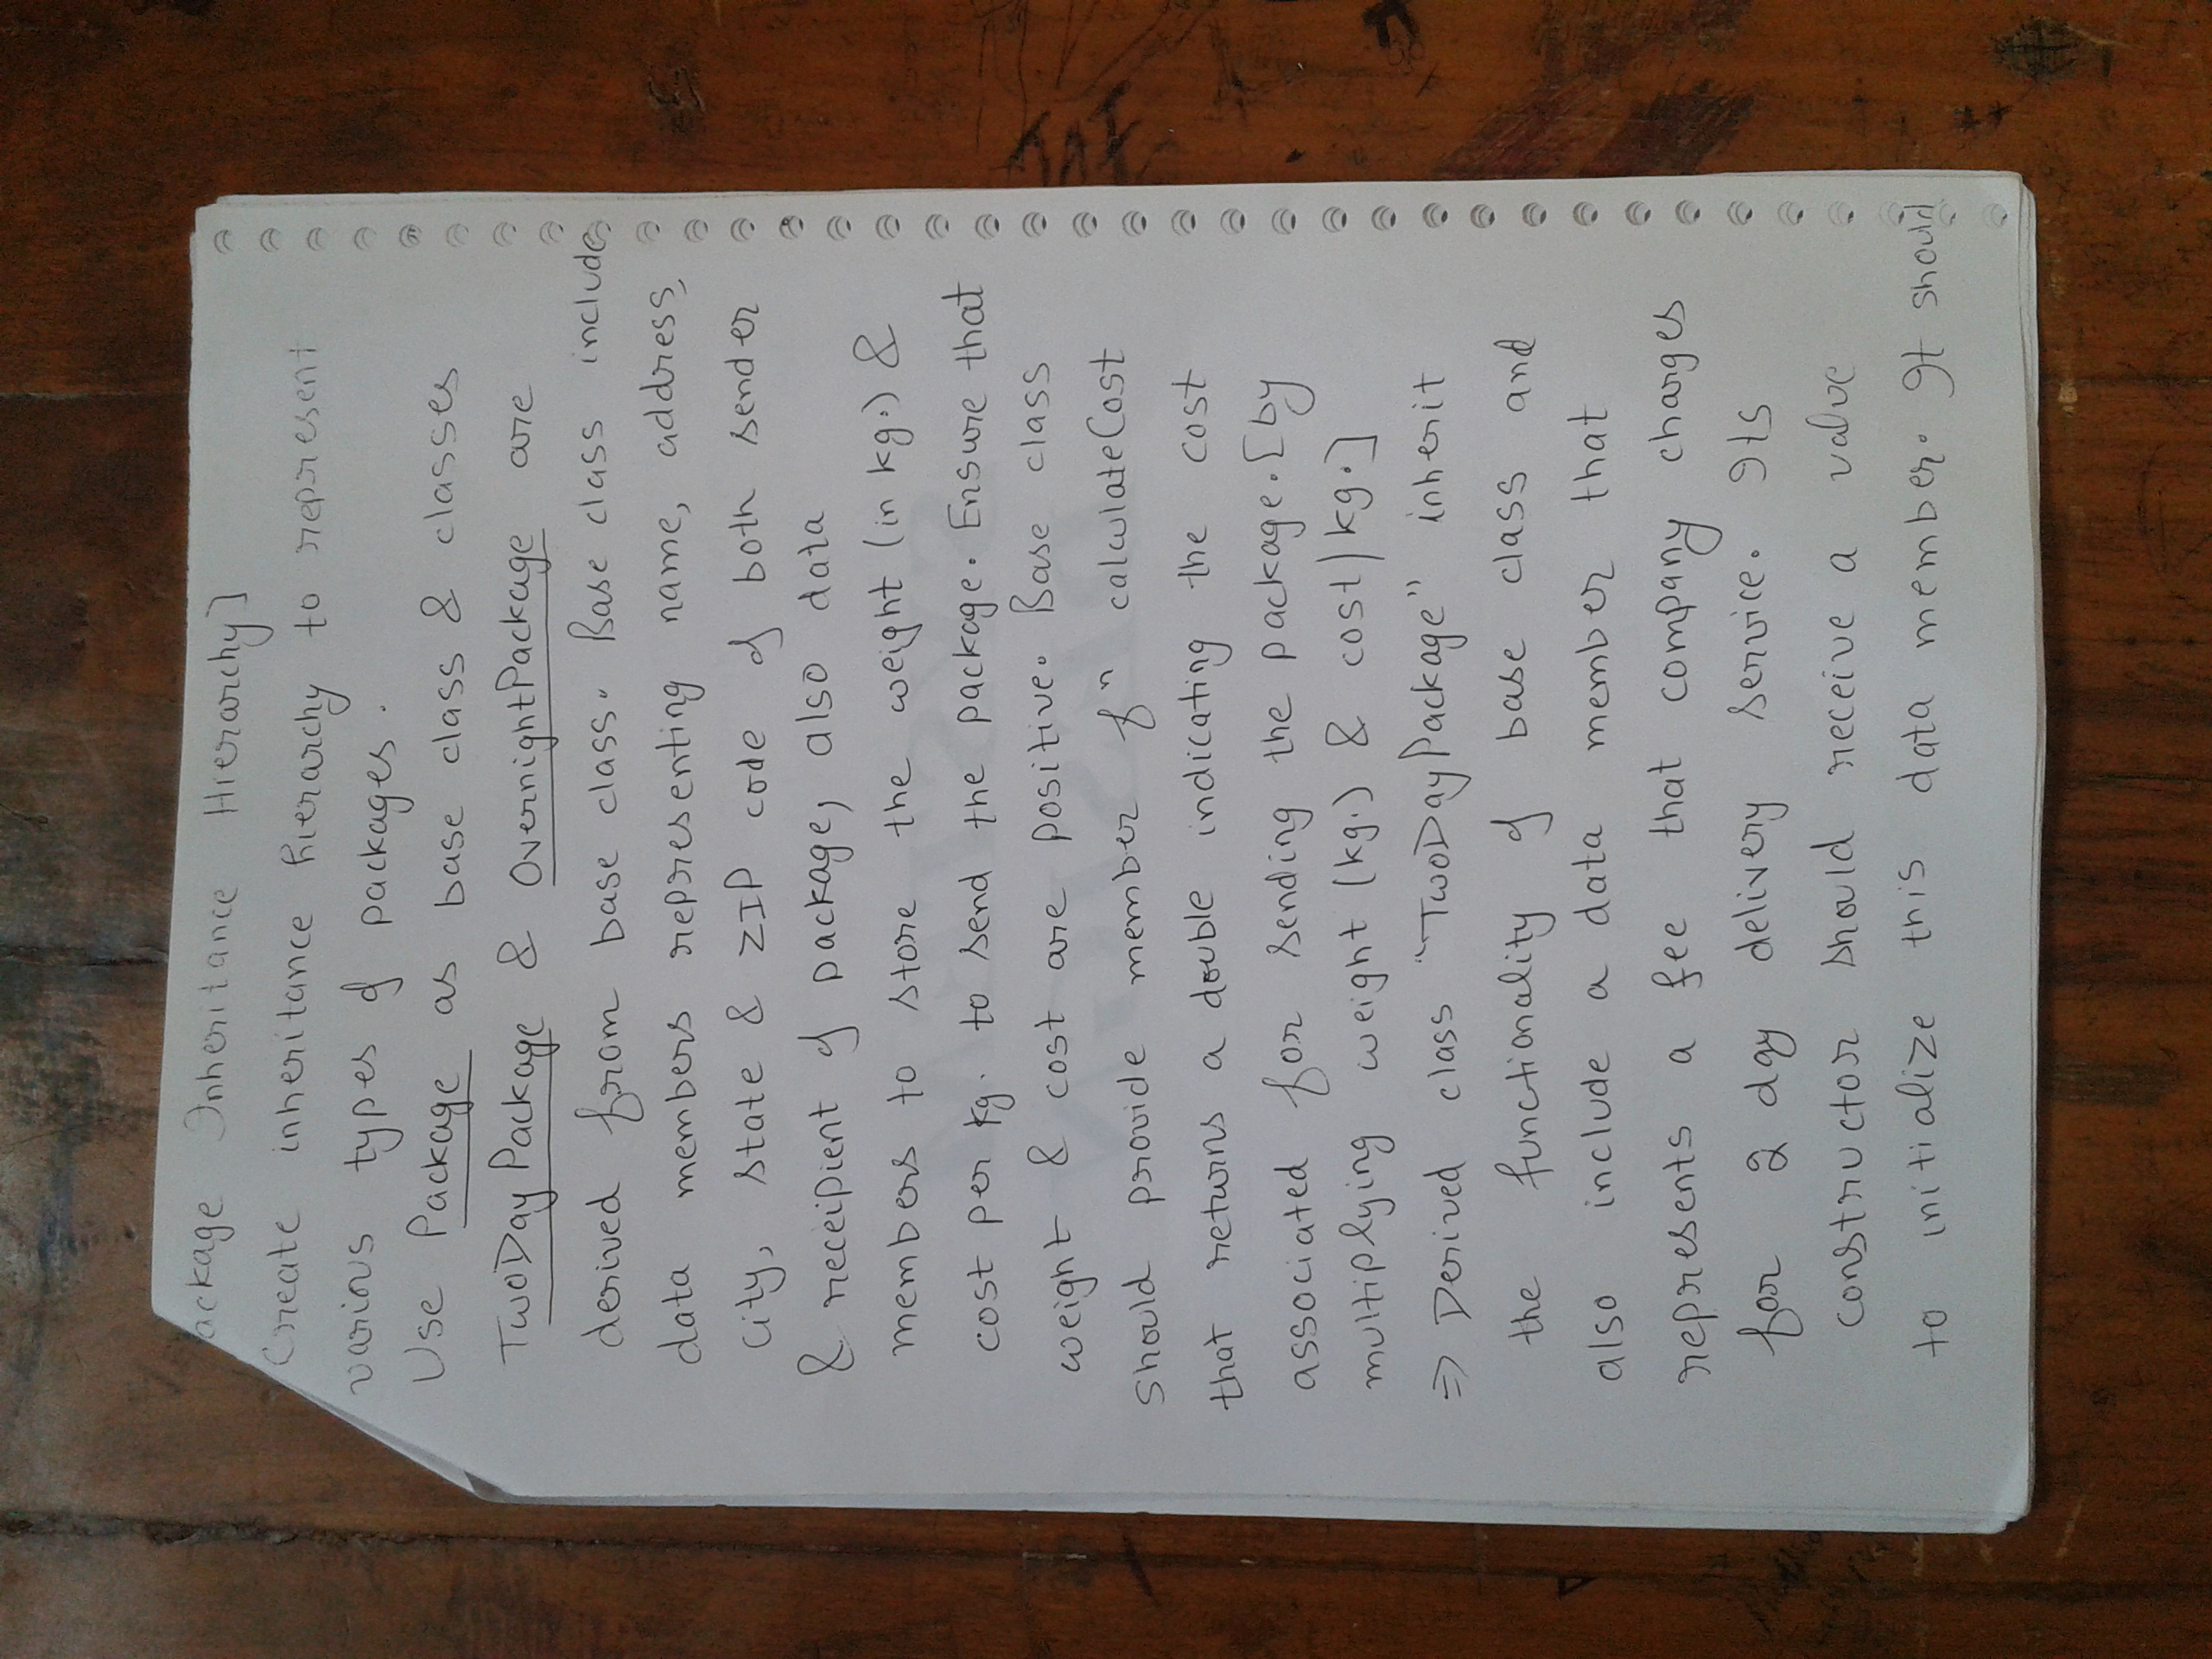 ackage Inheritance Hierarchy]
Create inheritance hierarchy to represent
various types of packages.
Use Package as base class & classes
TwoDayPackage & OvernightPackage are
derived from base class. Base class include
data members representing name, address,
city, state & ZIP code of both sender
& receipient of package, also data
members to store the weight (in kg.) &
cost per kg. to send the package. Ensure that
weight & cost are positive. Base class
should provide member fn calculateCost
that returns a double indicating the cost
associated for sending the package. [by
multiplying weight (kg.) & cost/kg.]
⇒ Derived class "TwoDayPackage" inherit
the functionality of base class and
also include a data member that
represents a fee that company charges
for 2 day delivery service. Its
constructor should receive a value
to initialize this data member. It should